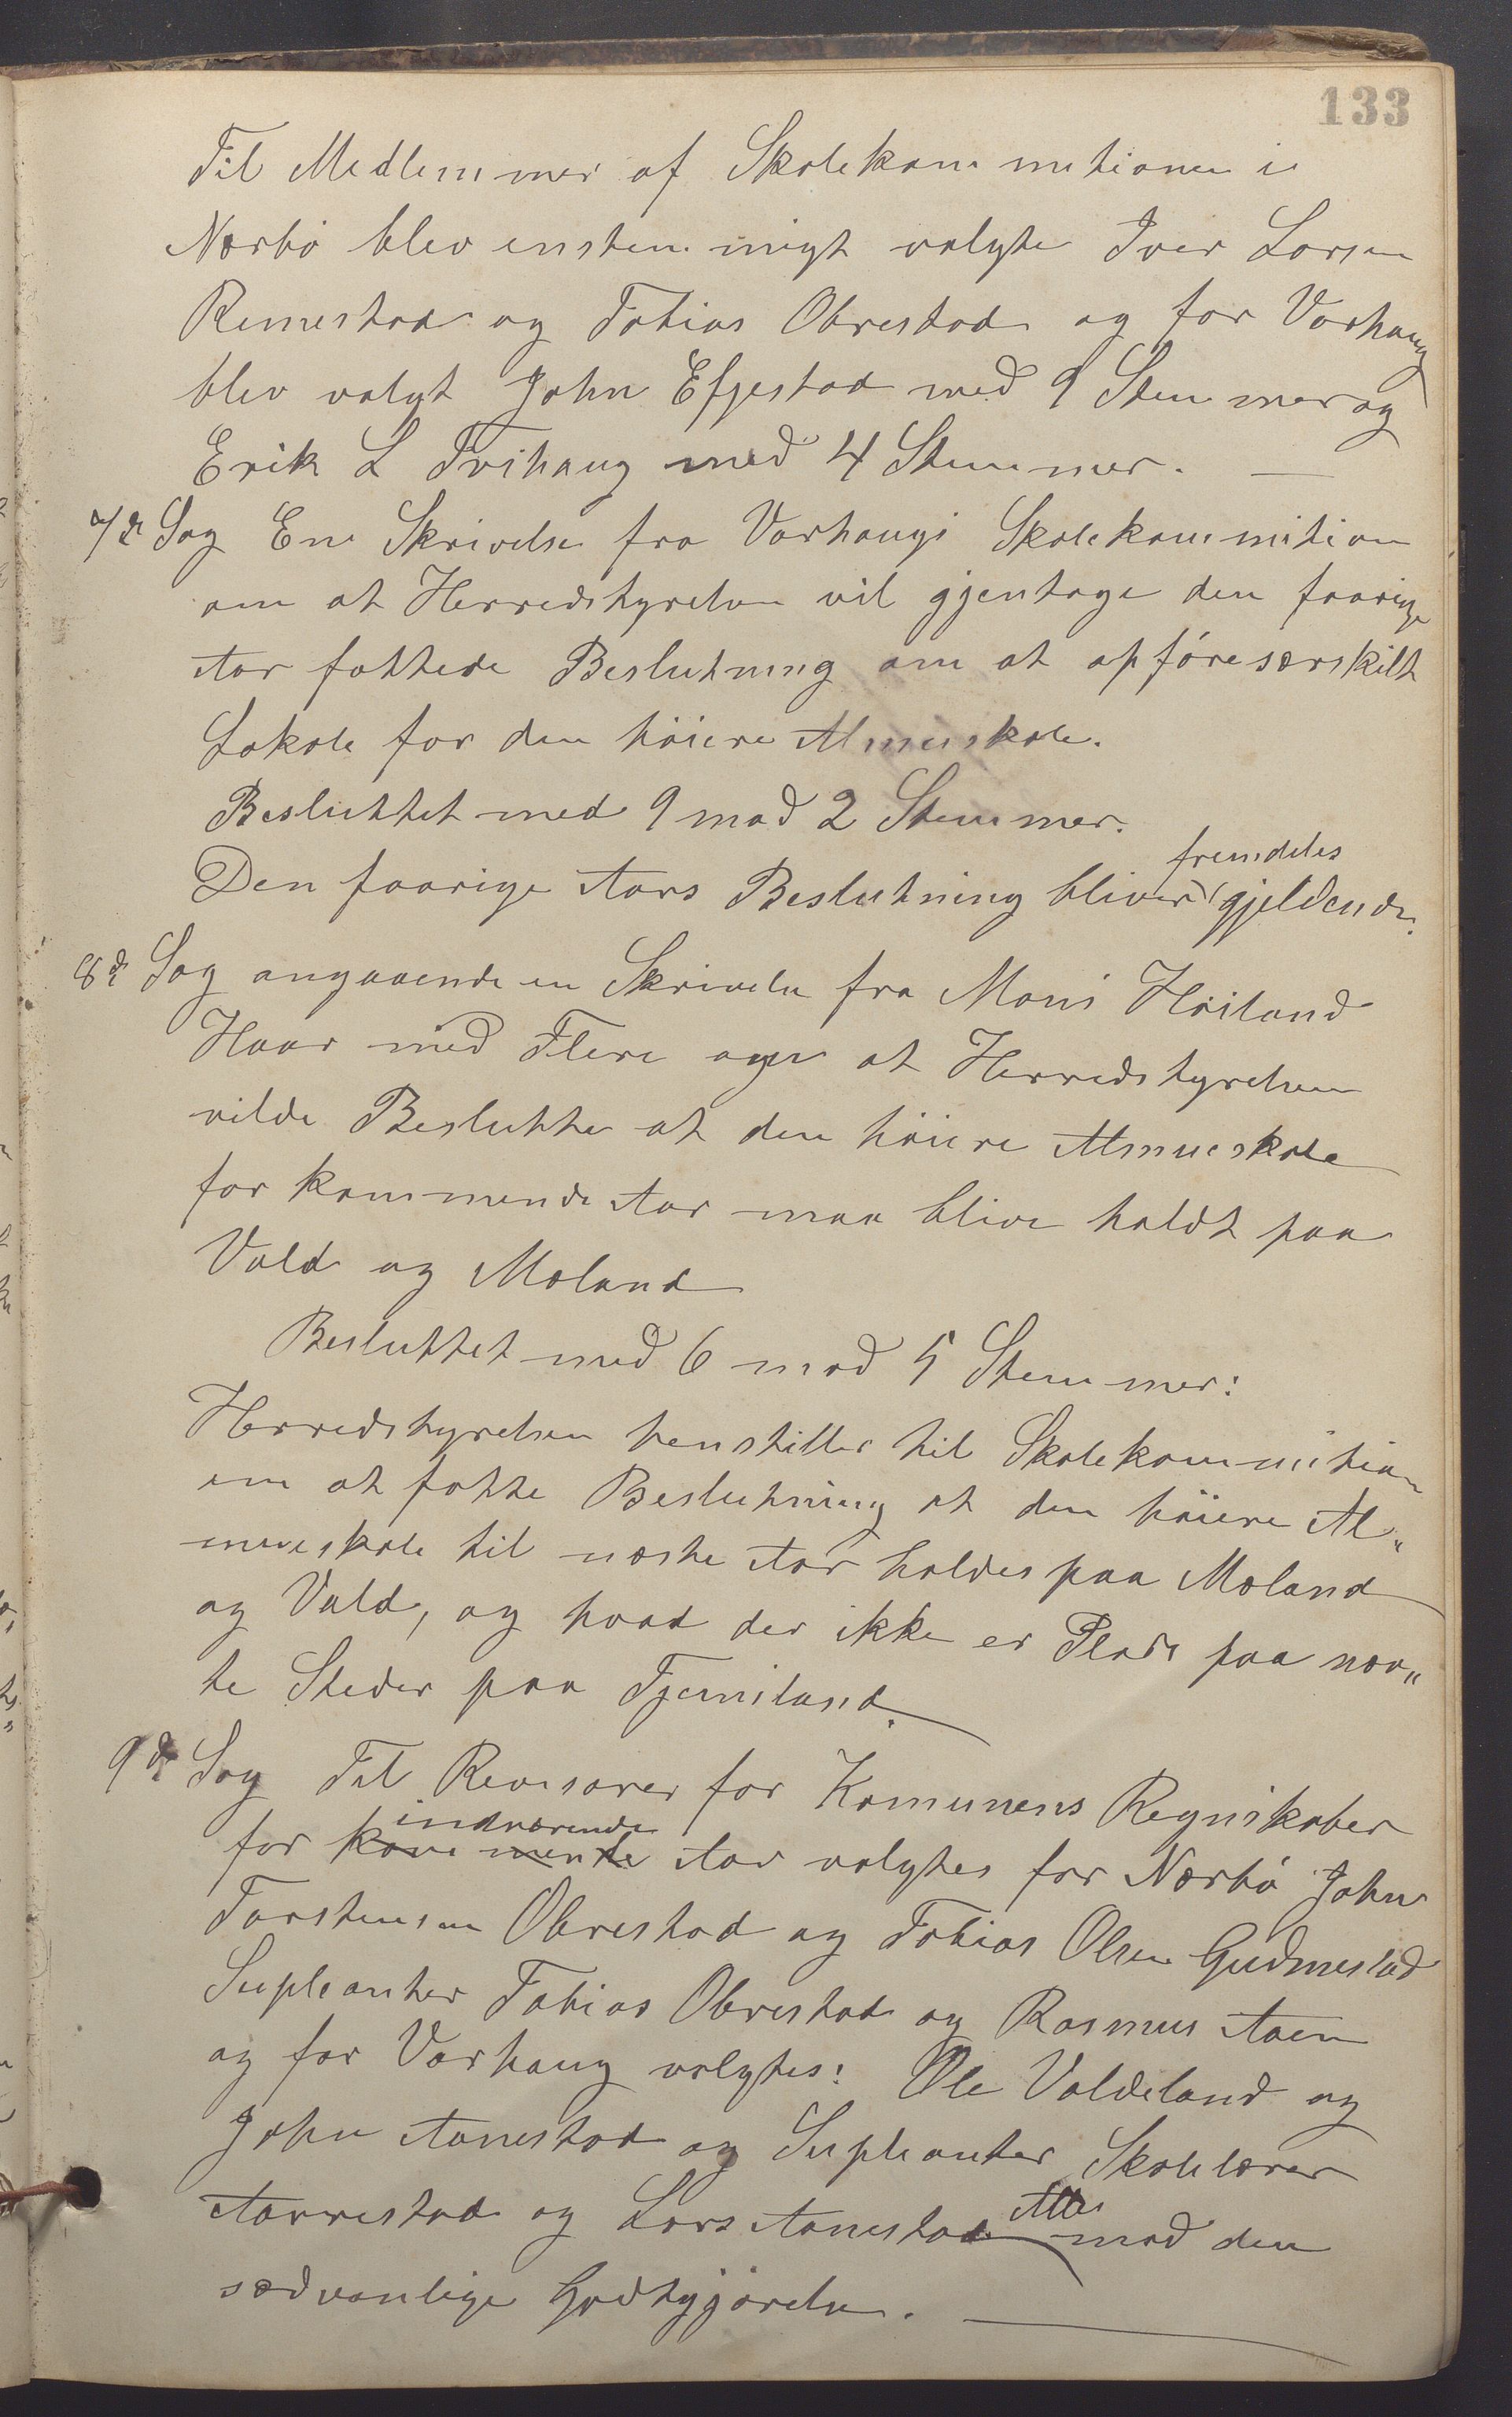 133
Til Medlemmer af Skolekommitionen i
Nærbø blev enstemmigt valgte Iver Larsen
Rimestad og Tobias Obrestad og for Varhaug
blev valgt John Efjestad med 9 Stemmer og
Erik L Tvihaug med 4 Stemmer. —
7de Sag En Skrivelse fra Varhaugs Skolekommition
om at Herredstyrelsen vil gjentage den faarige
Aar fattede Beslutning om at opføre særskilt
Lokale for den høiere Almueskole.
Besluttet med 9 mod 2 Stemmer.
Den faarige Aars Beslutning bliver fremdeles gjeldende.
8de Sag angaaende en Skrivelse fra Mons Høiland
Haar med Flere at Herredstyrelsen
vilde Beslutte at den høiere Almueskole
for kommende Aar maa blive holdt paa
Vold og Moland
Besluttet med 6 mod 5 Stemmer:
Herredstyrelsen henstiller til Skolekommition
om at fatte Beslutning at den høiere Al„
mueskole til næste Aar holdes paa Moland
og Vold, og hvad der ikke er Plads paa næv„
te Steder paa Tjemsland.
9de Sag Til Revisorer for Komunens Regnskaber
for kommende indværende Aar valgtes for Nærbø John
Torstensen Obrestad og Tobias Olsen Gudmestad
Supleanter Tobias Obrestad og Rasmus Aaen
og for Varhaug valgtes: Ole Valdeland og
John Aanestad og Supleanter Skolelærer
Aarrestad og Lars Aanestad Alle mod den
sædvanlige Godtgjørelse. —